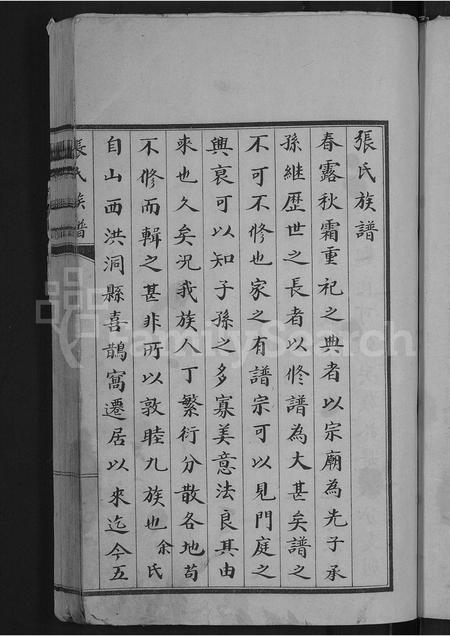 張氏族譜
春露秋霜重祀之典者以宗廟為先子承
孫継歷世之長者以修譜為大甚矣譜之
不可不修也家之有譜宗可以見門庭之
興衰可以知子孫之多寡美意法良其由
來也久矣况我族人丁繁衍分散各地苟
不修而輯之甚非所以敦睦九族也余氏
自山西洪洞縣喜鵲窩遷居以來迄今五
張氏族譜
FamilySearch